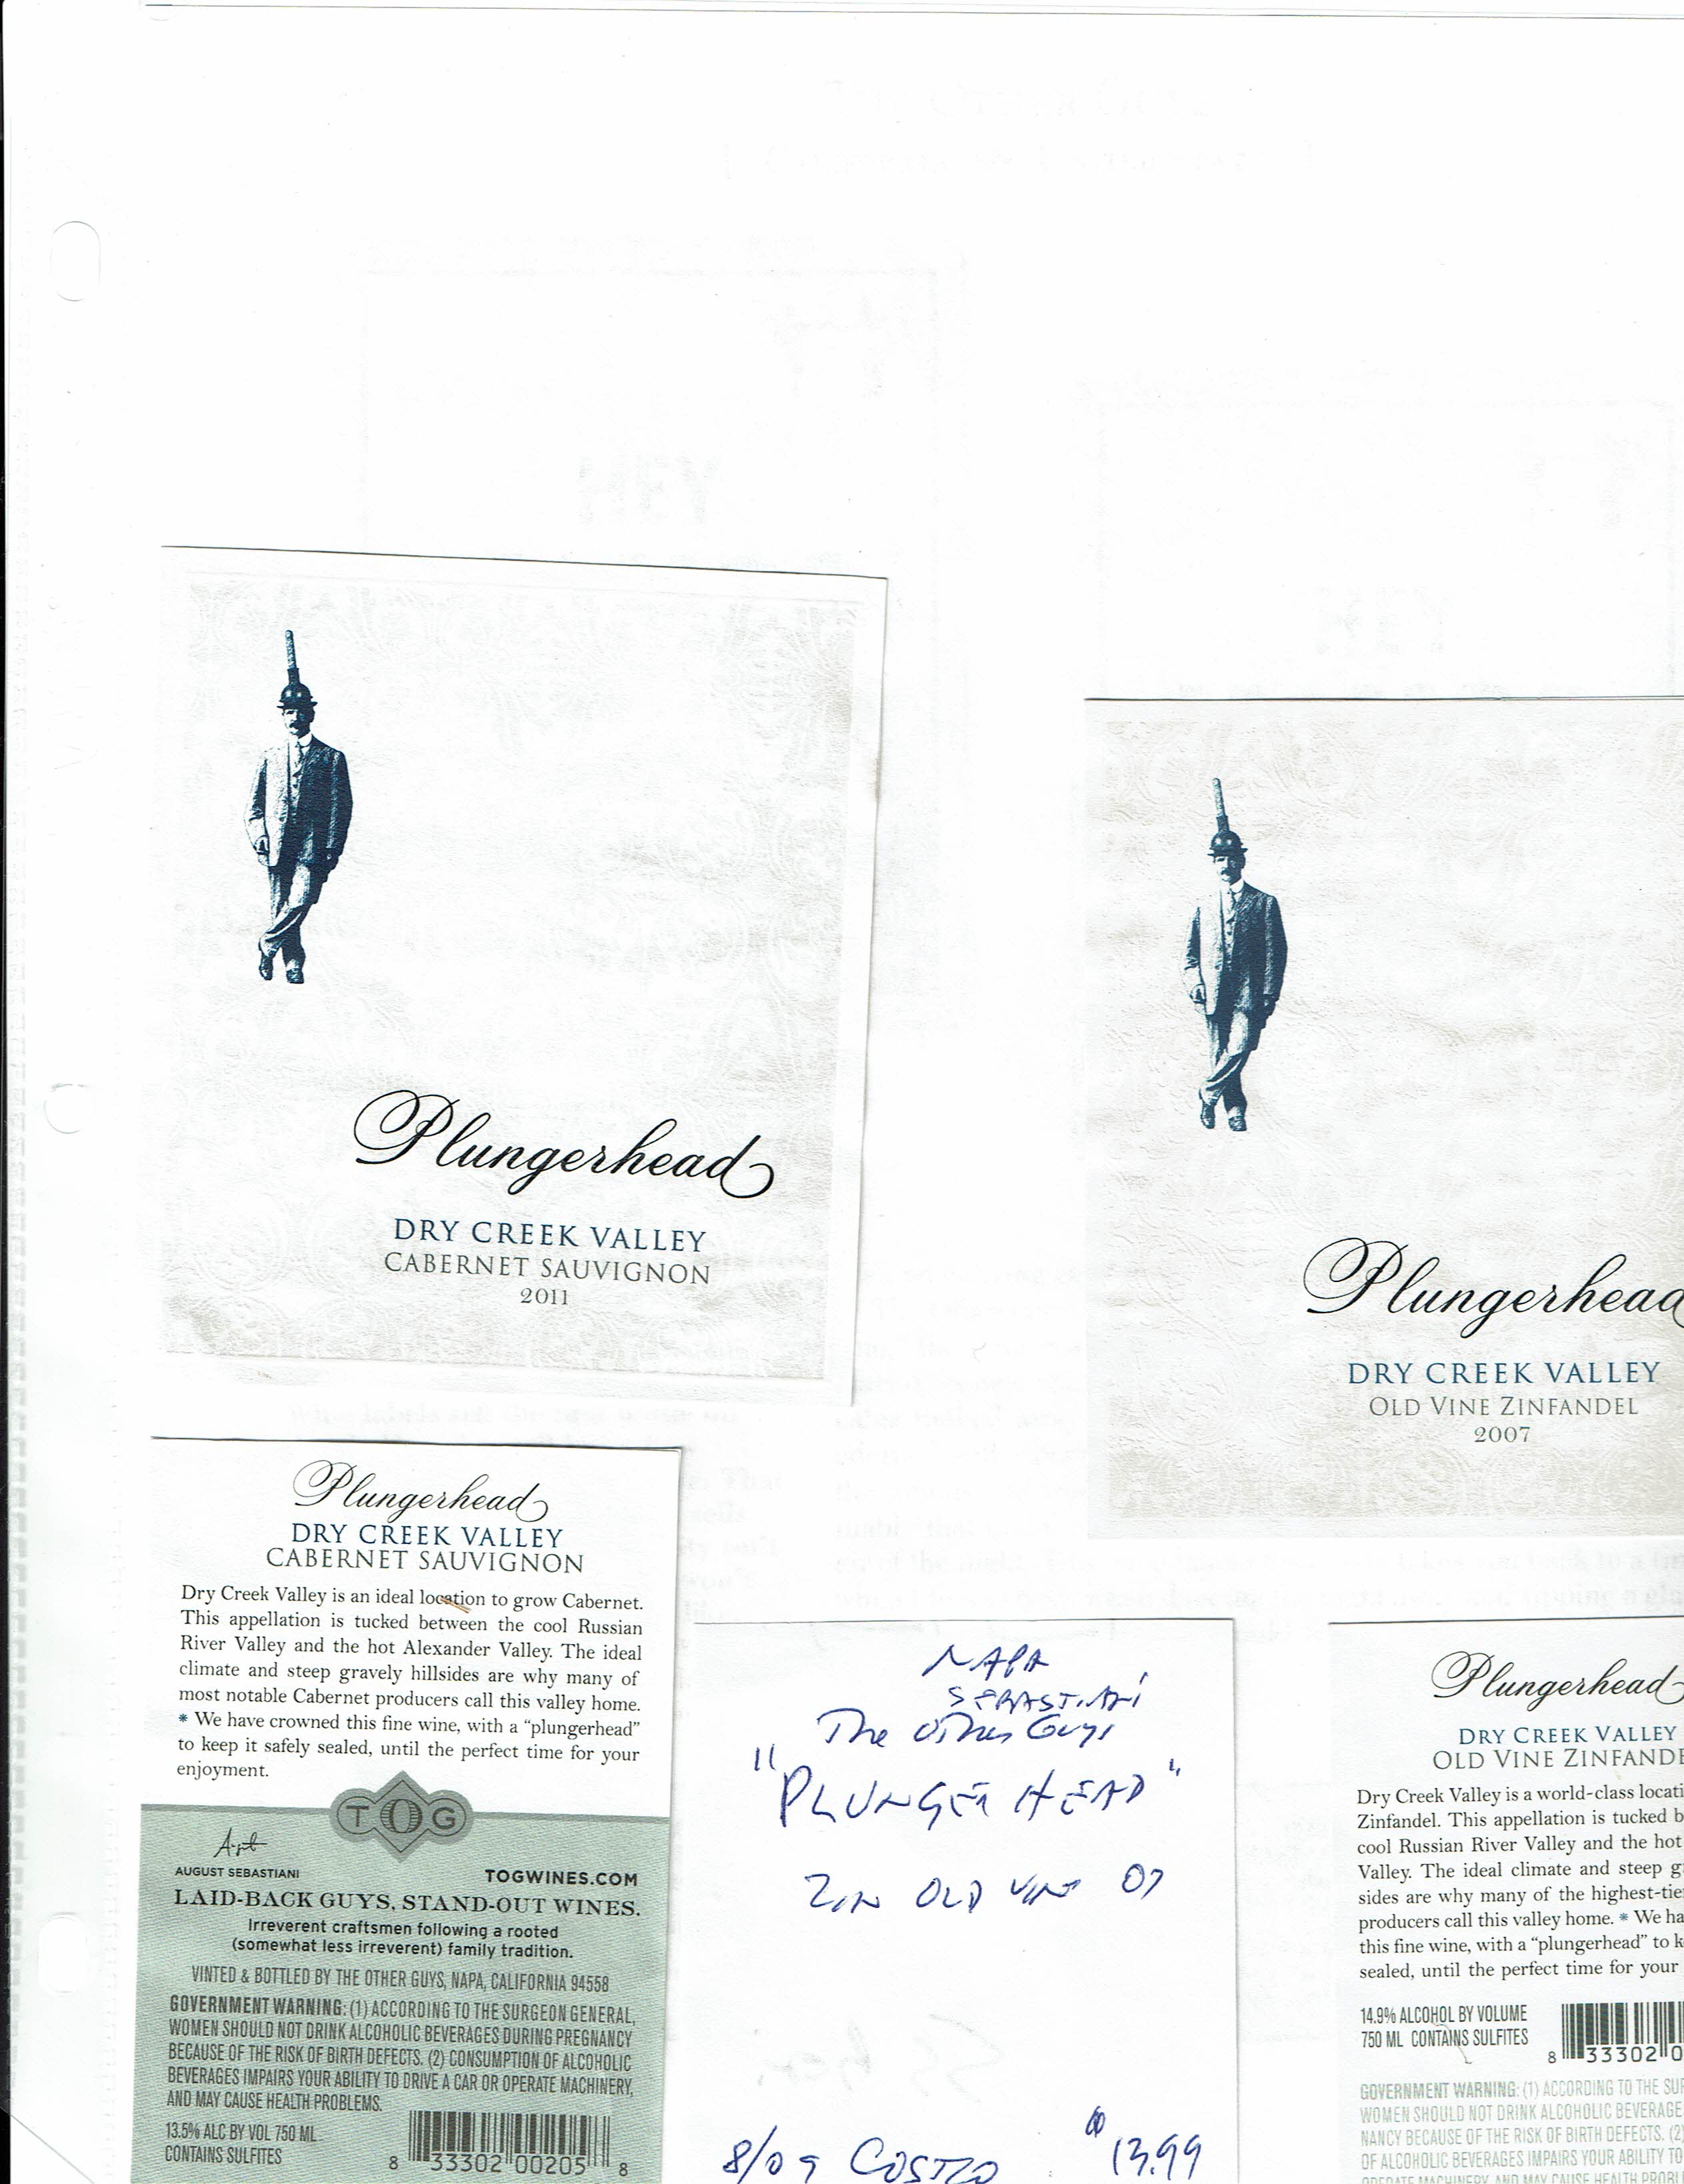 Plungerhead
DRY CREEK VALLEY
CABERNET SAUVIGNON
2011
Plungerhead
DRY CREEK VALLEY
OLD VINE ZINFANDEL
2007
Plungerhead
DRY CREEK VALLEY
CABERNET SAUVIGNON
Dry Creek Valley is an ideal location to grow Cabernet.
This appellation is tucked between the cool Russian
River Valley and the hot Alexander Valley. The ideal
climate and steep gravely hillsides are why many of
most notable Cabernet producers call this valley home.
* We have crowned this fine wine, with a “plungerhead”
to keep it safely sealed, until the perfect time for your
enjoyment.
TOG
AUGUST SEBASTIANI
TOGWINES.COM
LAID-BACK GUYS, STAND-OUT WINES.
Irreverent craftsmen following a rooted
(somewhat less irreverent) family tradition.
VINTED & BOTTLED BY THE OTHER GUYS, NAPA, CALIFORNIA 94558
GOVERNMENT WARNING: (1) ACCORDING TO THE SURGEON GENERAL,
WOMEN SHOULD NOT DRINK ALCOHOLIC BEVERAGES DURING PREGNANCY
BECAUSE OF THE RISK OF BIRTH DEFECTS. (2) CONSUMPTION OF ALCOHOLIC
BEVERAGES IMPAIRS YOUR ABILITY TO DRIVE A CAR OR OPERATE MACHINERY,
AND MAY CAUSE HEALTH PROBLEMS.
13.5% ALC BY VOL 750 ML
CONTAINS SULFITES
8 33302 00205 8
NAPA
SEBASTIANI
The Other Guys
"PLUNGER HEAD"
ZIN OLD VINE 07
8/09 COSTCO $13.99
Plungerhead
DRY CREEK VALLEY
OLD VINE ZINFANDE
Dry Creek Valley is a world-class locati
Zinfandel. This appellation is tucked b
cool Russian River Valley and the hot
Valley. The ideal climate and steep g
sides are why many of the highest-tie
producers call this valley home. * We ha
this fine wine, with a “plungerhead” to k
sealed, until the perfect time for your
14.9% ALCOHOL BY VOLUME
750 ML CONTAINS SULFITES
8 33302 0
GOVERNMENT WARNING: (1) ACCORDING TO THE SUR
WOMEN SHOULD NOT DRINK ALCOHOLIC BEVERAGE
NANCY BECAUSE OF THE RISK OF BIRTH DEFECTS. (2)
OF ALCOHOLIC BEVERAGES IMPAIRS YOUR ABILITY TO
OPERATE MACHINERY, AND MAY CAUSE HEALTH PROBL